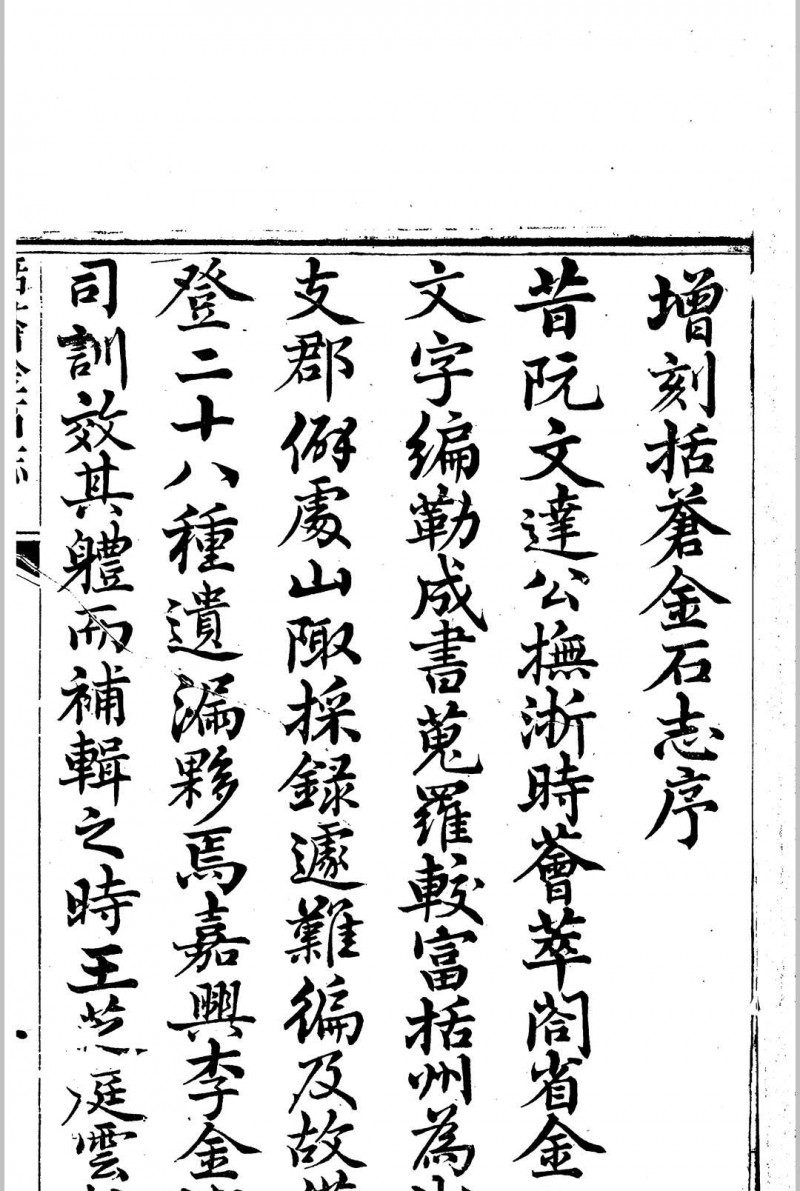 增刻括蒼金石志序
昔阮文達公撫浙時薈萃閤省金
文字編勒成書蒐羅較富括州為
支郡僻處山陬採錄遽難徧及故
登二十八種遺漏夥焉嘉興李金
司訓效其體而補輯之時王芝庭雲
括蒼金石志